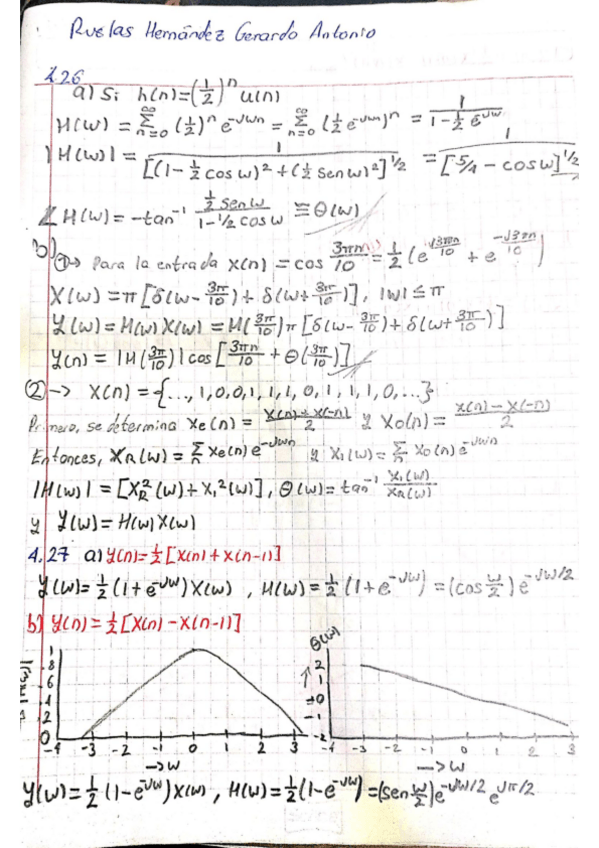 Ruelas Hernández Gerardo Antonio
4.26
a) Si h(n)=(1/2)^n u(n)
H(w) = ∑_{n=0}^{∞} (1/2)^n e^{-Jwn} = ∑_{n=0}^{∞} (1/2 e^{-Jwn})^n = 1/(1-1/2 e^{-Jw})
|H(w)| = 1/[(1-1/2 cos w)^2 + (1/2 sen w)^2]^{1/2} = 1/[5/4 - cos w]^{1/2}
∠H(w) = -tan^{-1} (1/2 sen w)/(1-1/2 cos w) ≡ θ(w)
b)
①→ Para la entrada x(n) = cos 3πn/10 = 1/2 (e^{J3πn/10} + e^{-J3πn/10})
X(w) = π[δ(w-3π/10) + δ(w+3π/10)], |w| ≤ π
Y(w) = H(w)X(w) = H(3π/10) π [δ(w-3π/10) + δ(w+3π/10)]
y(n) = |H(3π/10)| cos[3πn/10 + θ(3π/10)]
②→ x(n) = {..., 1,0,0,1,1,1,0,1,1,1,0,...}
Primero, se determina xe(n) = (x(n)+x(-n))/2 y xo(n) = (x(n)-x(-n))/2
Entonces, XR(w) = ∑_n xe(n)e^{-Jwn} y X1(w) = ∑_n xo(n)e^{-Jwn}
|H(w)| = [XR^2(w)+X1^2(w)], θ(w) = tan^{-1} X1(w)/XR(w)
y Y(w) = H(w)X(w)
4.27 a) y(n)=1/2[x(n)+x(n-1)]
Y(w)=1/2(1+e^{-Jw})X(w), H(w)=1/2(1+e^{-Jw}) = (cos w/2)e^{-Jw/2}
b) y(n)=1/2[x(n)-x(n-1)]
θ(w)
1 8 6 4 2 0
2 1 0 -1 -2
-4 -3 -2 -1 0 1 2 3 -4 -3 -2 -1 0 1 2 3
→w →w
Y(w)=1/2(1-e^{-Jw})X(w), H(w)=1/2(1-e^{-Jw})=(sen w/2)e^{-Jw/2} e^{Jπ/2}